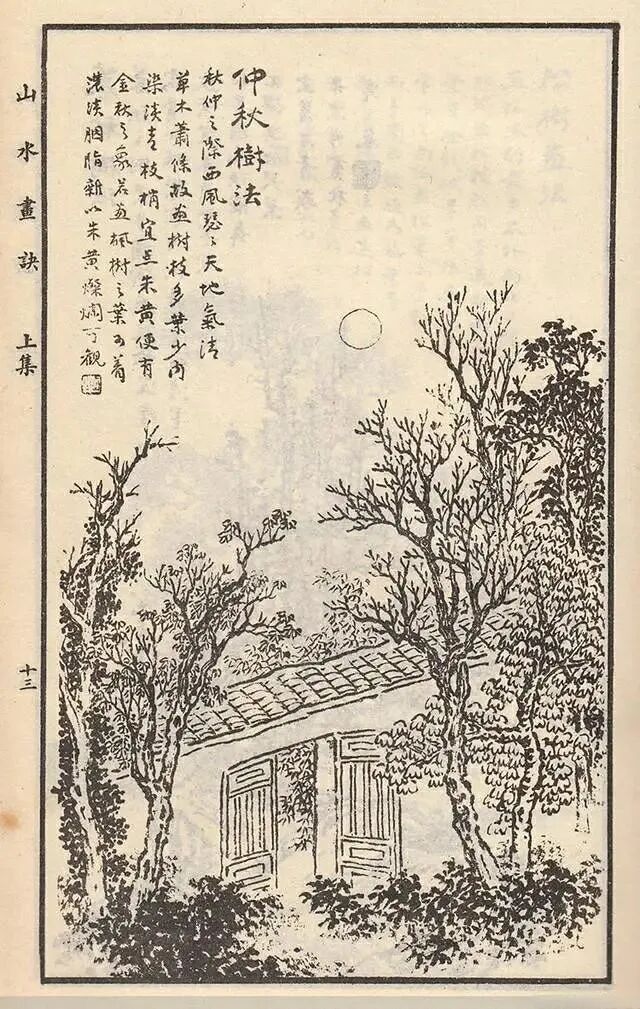 仲秋樹法
秋仲之際西風瑟々天地氣清
草木蕭條故画樹枝多葉少内
染淡青枝梢宜点朱黄便有
金秋之象若画楓樹之葉可着
濃淡胭脂雜以朱黄燦爛可観
山水畫訣 上集
十三